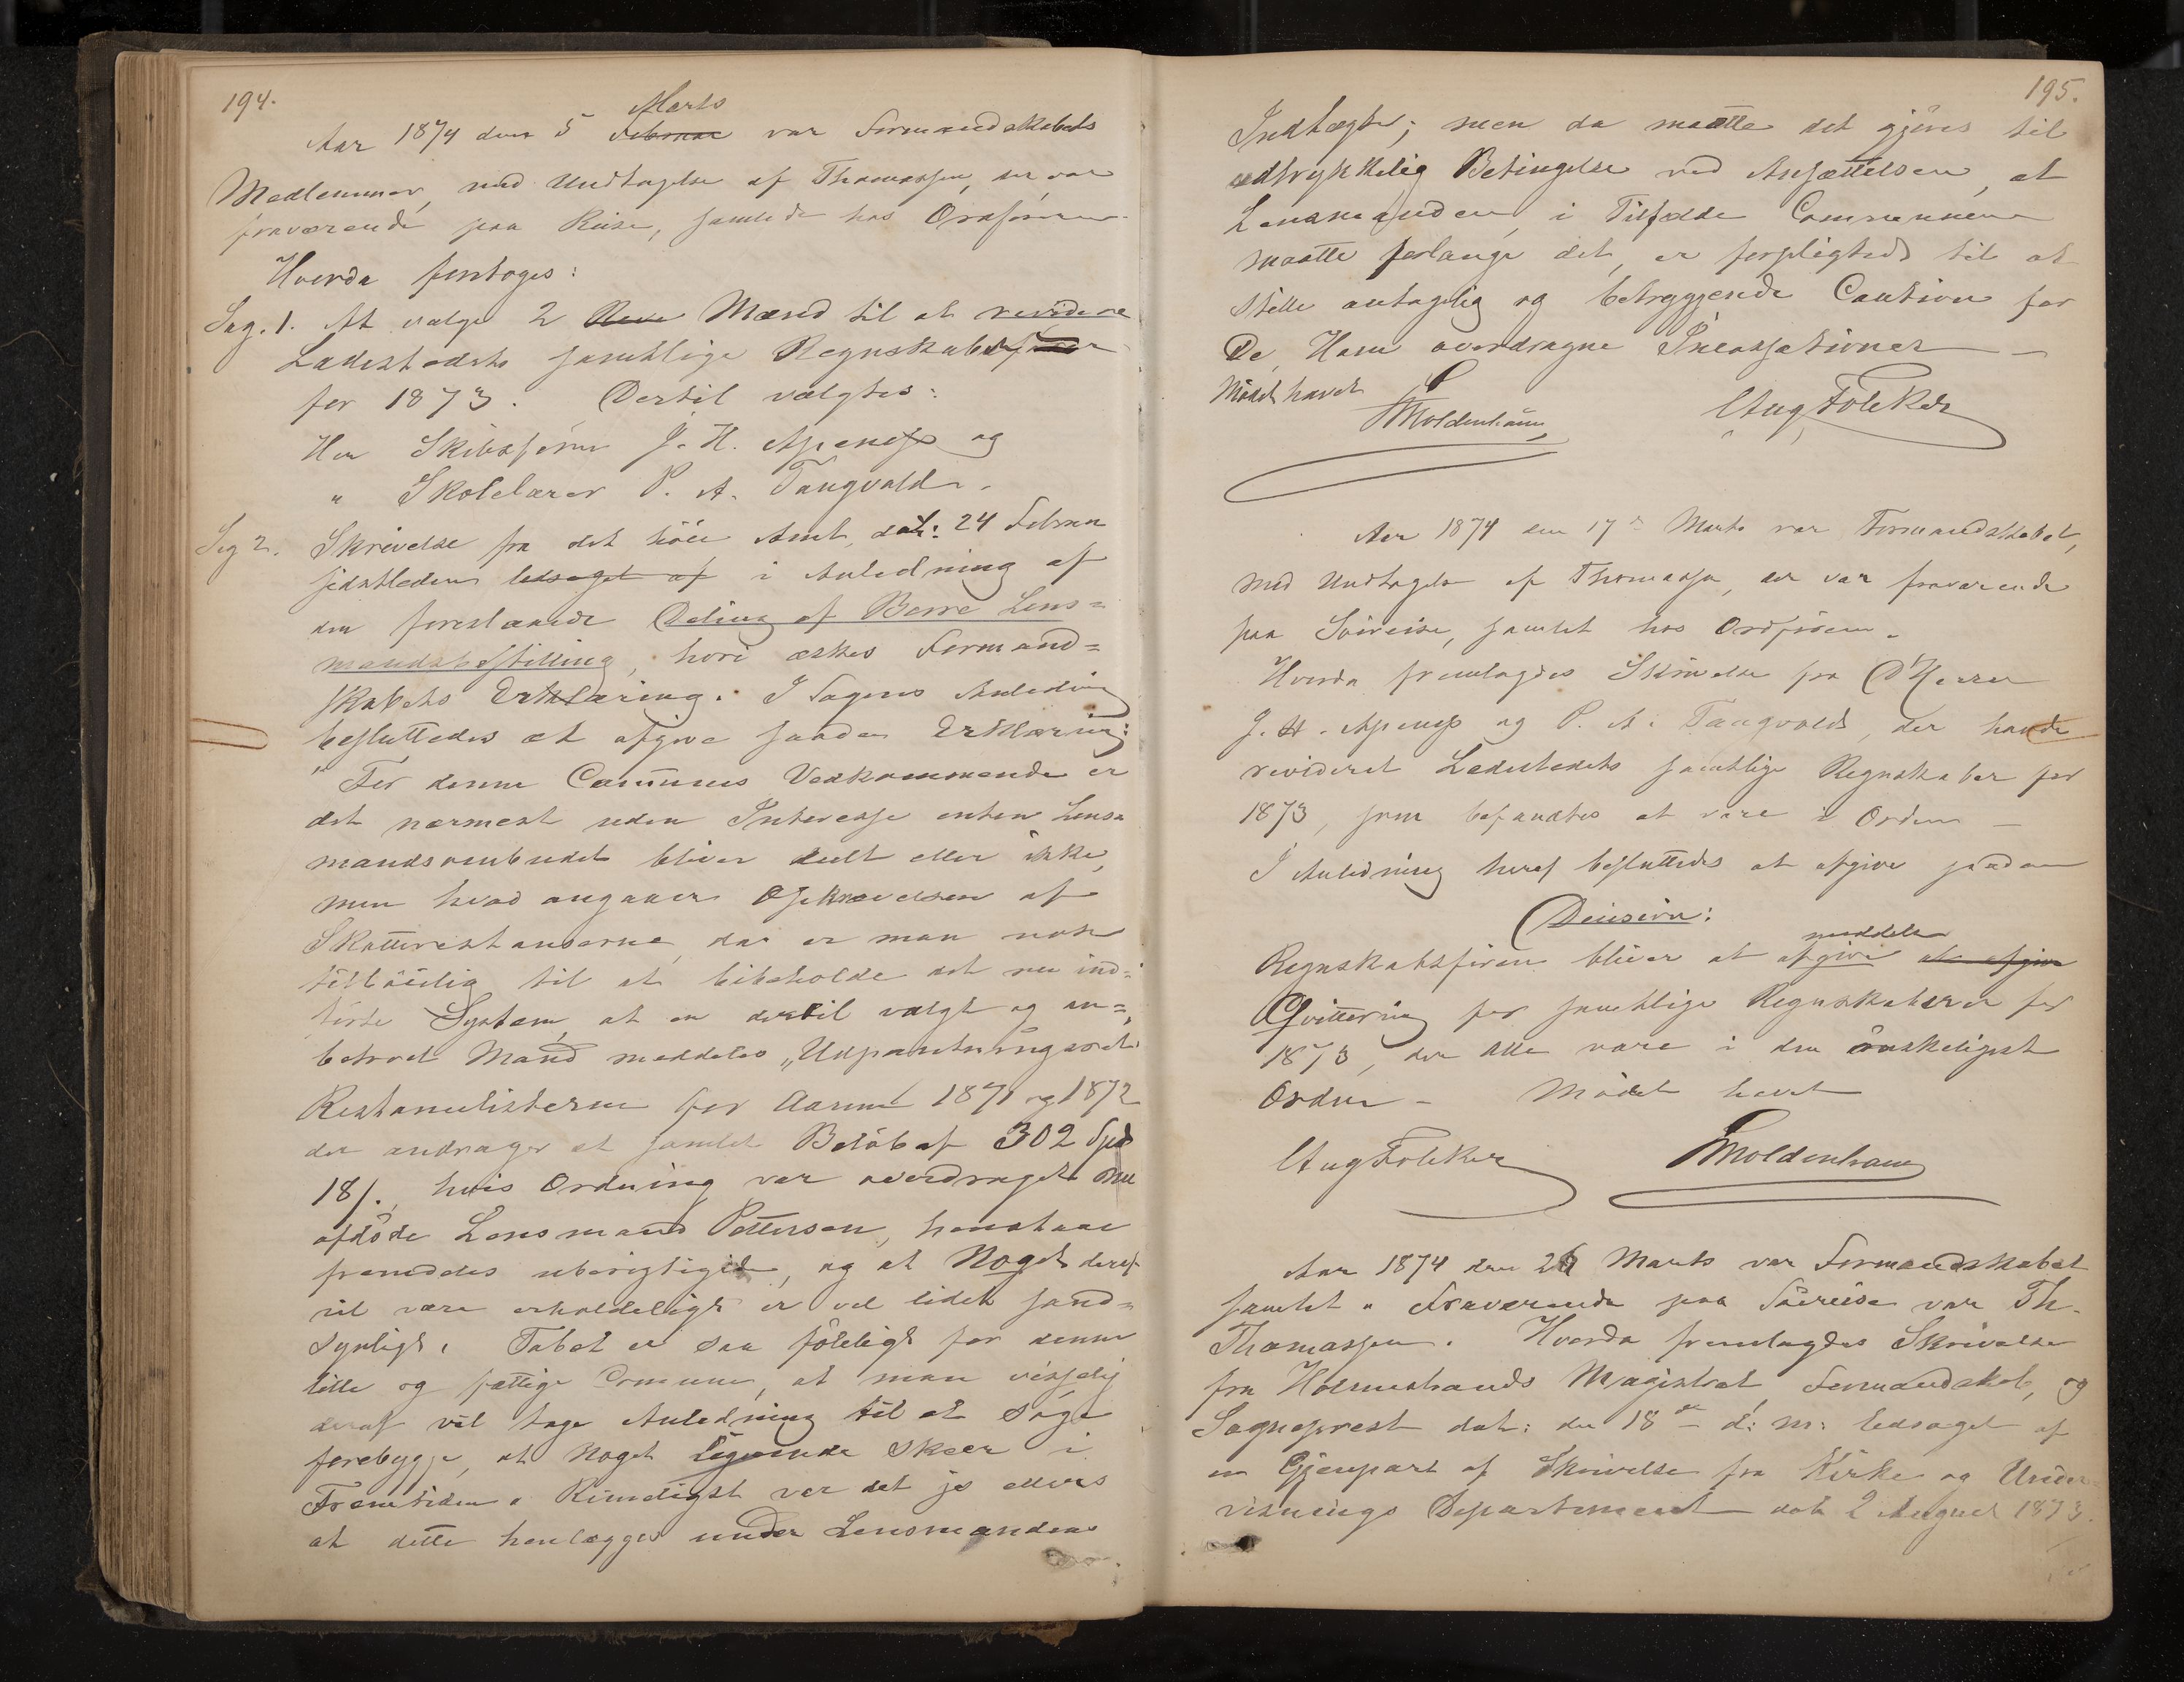 194.
Aar 1874 den 5 Februar Marts var Formandskabets
Medlemmer, med Undtagelse af Thomassen, der var
fraværende paa Reise, samlede hos Ordføreren.
Hvorda foretoges:
Sag. 1. At vælge 2 Mænd til at revidere
Ladestedets samtlige Regnskaber
for 1873. Dertil valgtes:
Herr Skibsfører J. H. Apenæs og
" Skolelærer P. A. Tangvald.
Sag 2. Skrivelse fra det høie Amt, dat: 24 Februar
sidstleden ledsaget af i Anledning af
den foreslaaede Deling af Borre Lens=
mandsbestilling, hvori æskes Formand=
skabets Erklæring. I Sagens Anledning
besluttedes at afgive saadan Erklæring:
"For denne Communes Vedkommende er
det nærmest uden Interesse enten Lens=
mandsombudet bliver deelt eller ikke,
men hvad angaaer Opkrævelsen af
Skatterestanserne, da er man nok
tilbøielig til at bibeholde det nu ind=
førte System, at en dertil valgt og an=
betroet Mand meddeles „Udpantningsret.
Restancelisterne for Aarene 1871 og 1872
der andrager et samlet Beløb af 302 Spd
18 s., hvis Ordning var overdraget nu
afdøde Lensmand Pettersen, henstaae
fremdeles uberigtiget, og at Noget deraf
vil være erholdeligt er vel lidet sand=
synligt. Tabet er saa føleligt for denne
lille og fattige Commune, at man visselig
deraf vil tage Anledning til at søge
forebygge, at Noget lignende skeer i
Fremtiden. Rimeligst var det jo ellers
at dette henlægges under Lensmandens
195.
Indtægter; men da maatte det gjøres til
udtrykkelig Betingelse ved Ansættelsen, at
Lensmanden, i Tilfælde Communen
maatte forlange det, er forpligtet til at
stille antagelig og betryggende Caution for
De Ham overdragne Incassationer —
Mødet hævet
Moldenhauer Aug Foleker
Aar 1874 den 17de Marts var Formandskabet,
med Undtagelse af Thomassen, der var fraværende
paa Søereise, samlet hos Ordføreren.
Hvorda fremlagdes Skrivelse fra D'Herrer
J. H. Apenæs og P. A. Tangvald, der havde
revideret Ladestedets samtlige Regnskaber for
1873, som befandtes at være i Orden —
I Anledning heraf besluttedes at afgive saadan
Decision:
Regnskabsføreren bliver at afgive meddele at afgive
Qvittering for samtlige Regnskaberer for
1873, der Alle vare i den ønskeligste
Orden — Mødet hævet
Aug Foleker Moldenhauer
Aar 1874 den 26 Marts var Formandskabet
samlet. Fraværende paa Søereise var Th.
Thomassen. Hvorda fremlagdes Skrivelse
fra Holmestrands Magistrat, Formandskab, og
Sogneprest dat: den 18de d: m: ledsaget af
en Gjenpart af Skrivelse fra Kirke og Under=
visnings Departementet dat 2 August 1873.